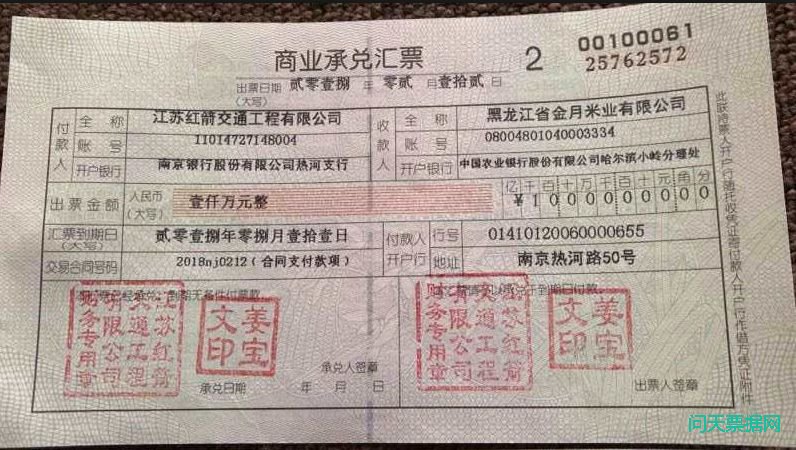 商业承兑汇票
2
00100061
25762572
出票日期
(大写)
贰零壹捌 年 零贰 月 壹拾贰 日
付款人
全称
江苏红箭交通工程有限公司
账号
11014727148004
开户银行
南京银行股份有限公司热河支行
收款人
全称
黑龙江省金月米业有限公司
账号
08004801040003334
开户银行
中国农业银行股份有限公司哈尔滨小岭分理处
出票金额
人民币
(大写)
壹仟万元整
亿千百十万千百十元角分
¥1000000000
汇票到期日
(大写)
贰零壹捌年零捌月壹拾壹日
付款人
开户行
行号
01410120060000655
地址
南京热河路50号
交易合同号码
2018nj0212(合同支付款项)
江苏红箭交通工程有限公司财务专用章
姜宝文印
承兑人签章
承兑日期 年 月 日
江苏红箭交通工程有限公司财务专用章
姜宝文印
出票人签章
此联持票人开户行随托收凭证寄付款人开户行作借方凭证附件
问天票据网